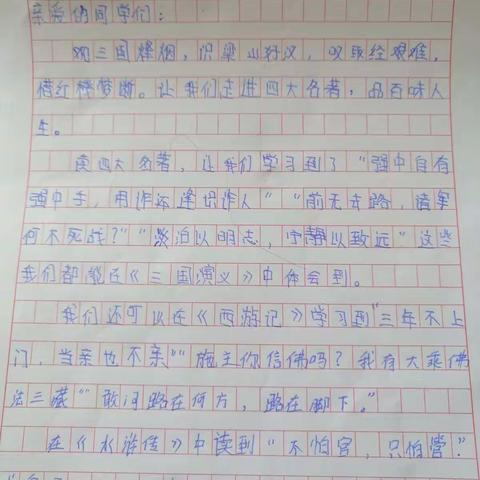 亲爱的同学们：
观三国烽烟，识梁山好汉，叹取经艰难，
惜红楼梦断。让我们走进四大名著，品百味人
生。
读四大名著，让我们学习到了“强中自有
强中手，用诈还逢识诈人”“前无去路，诸军
何不死战？”“淡泊以明志，宁静以致远”这些
我们都能在《三国演义》中体会到。
我们还可以在《西游记》学习到“三年不上
门，当亲也不亲”“施主你信佛吗？我有大乘佛
法三藏”“敢问路在何方，路在脚下。”
在《水浒传》中读到“不怕官，只怕管”